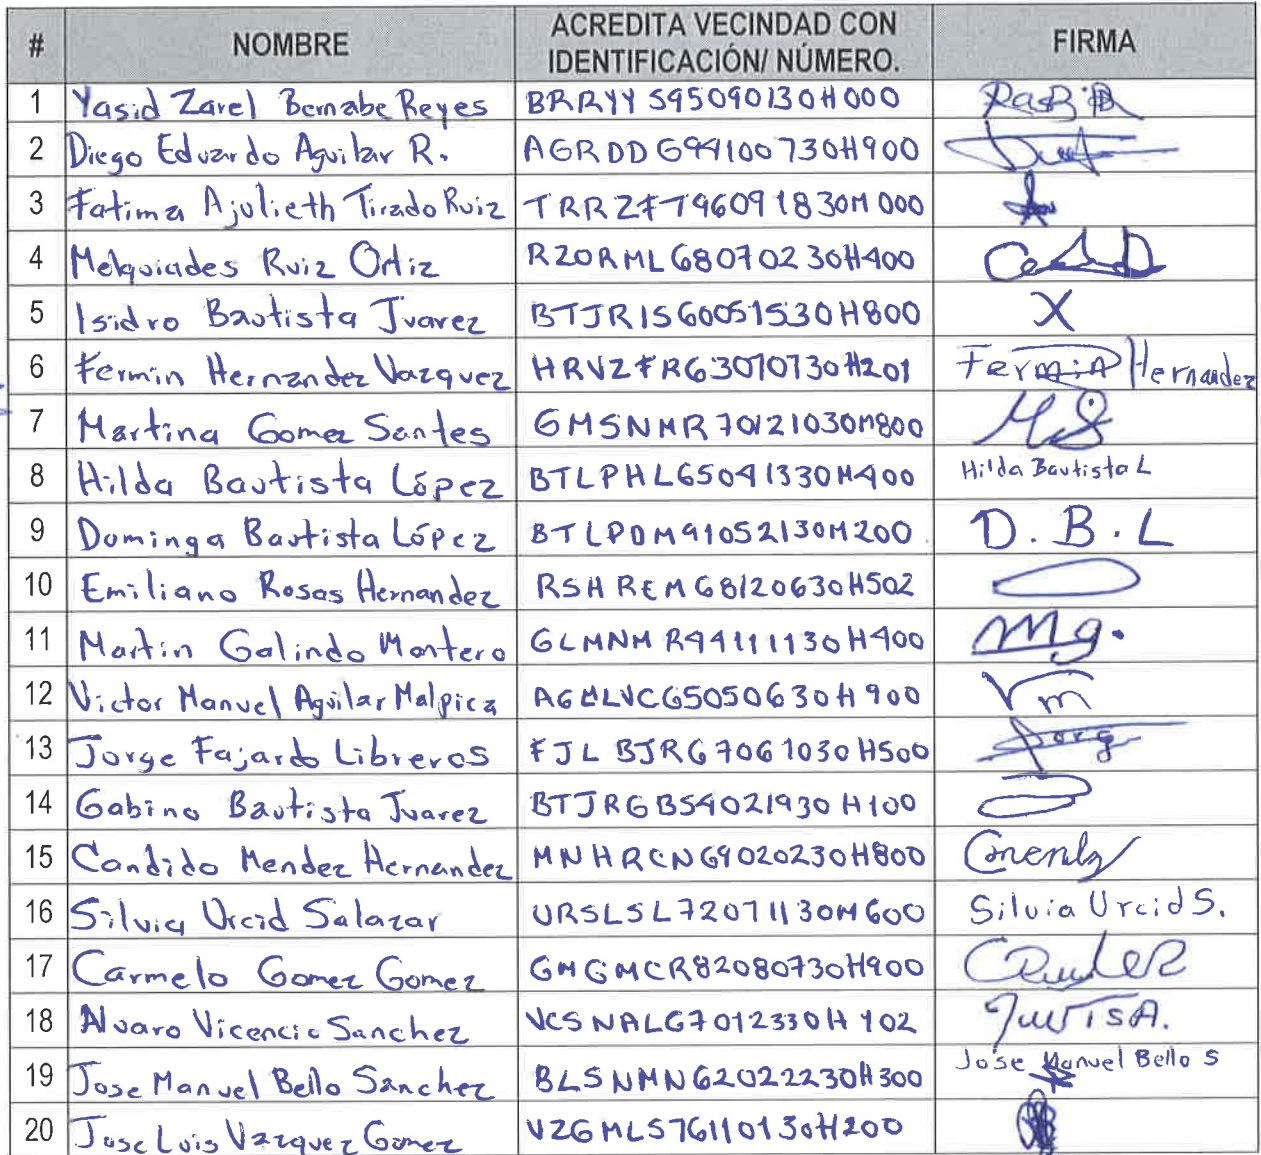 # NOMBRE ACREDITA VECINDAD CON IDENTIFICACIÓN/ NÚMERO. FIRMA
1 Yasid Zarel Bernabe Reyes BRRYYS95090130H000
2 Diego Eduardo Aguilar R. AGRDDG94100730H900
3 Fatima Ajulieth Tirado Ruiz TRRZFT96091830M000
4 Melquiades Ruiz Ortiz RZORML68070230H400
5 Isidro Bautista Juarez BTJRIS60051530H800 X
6 Fermin Hernandez Vazquez HRVZFR63070730H201 Fermin Hernandez
7 Martina Gomez Santes GMSNMR70121030M800
8 Hilda Bautista López BTLPHL65041330M400 Hilda Bautista L
9 Dominga Bautista López BTLPDM91052130M200 D.B.L
10 Emiliano Rosas Hernandez RSHREM68120630H502
11 Martin Galindo Montero GLMNMR44111130H400 Mg.
12 Victor Manuel Aguilar Malpica AGMLVC65050630H900 Vm
13 Jorge Fajardo Libreros FJLBJRG7061030H500 Jorg
14 Gabino Bautista Juarez BTJRGB54021930H100
15 Candido Mendez Hernandez MNHRCN69020230H800
16 Silvia Urcid Salazar URSLSL72071130M600 Silvia Urcid S.
17 Carmelo Gomez Gomez GMGMCR82080730H900
18 Alvaro Vicencio Sanchez VCSNALG7012330H102
19 Jose Manuel Bello Sanchez BLSNMN62022230H300 Jose Manuel Bello S
20 Jose Luis Vazquez Gomez VZGMLS76110130H200